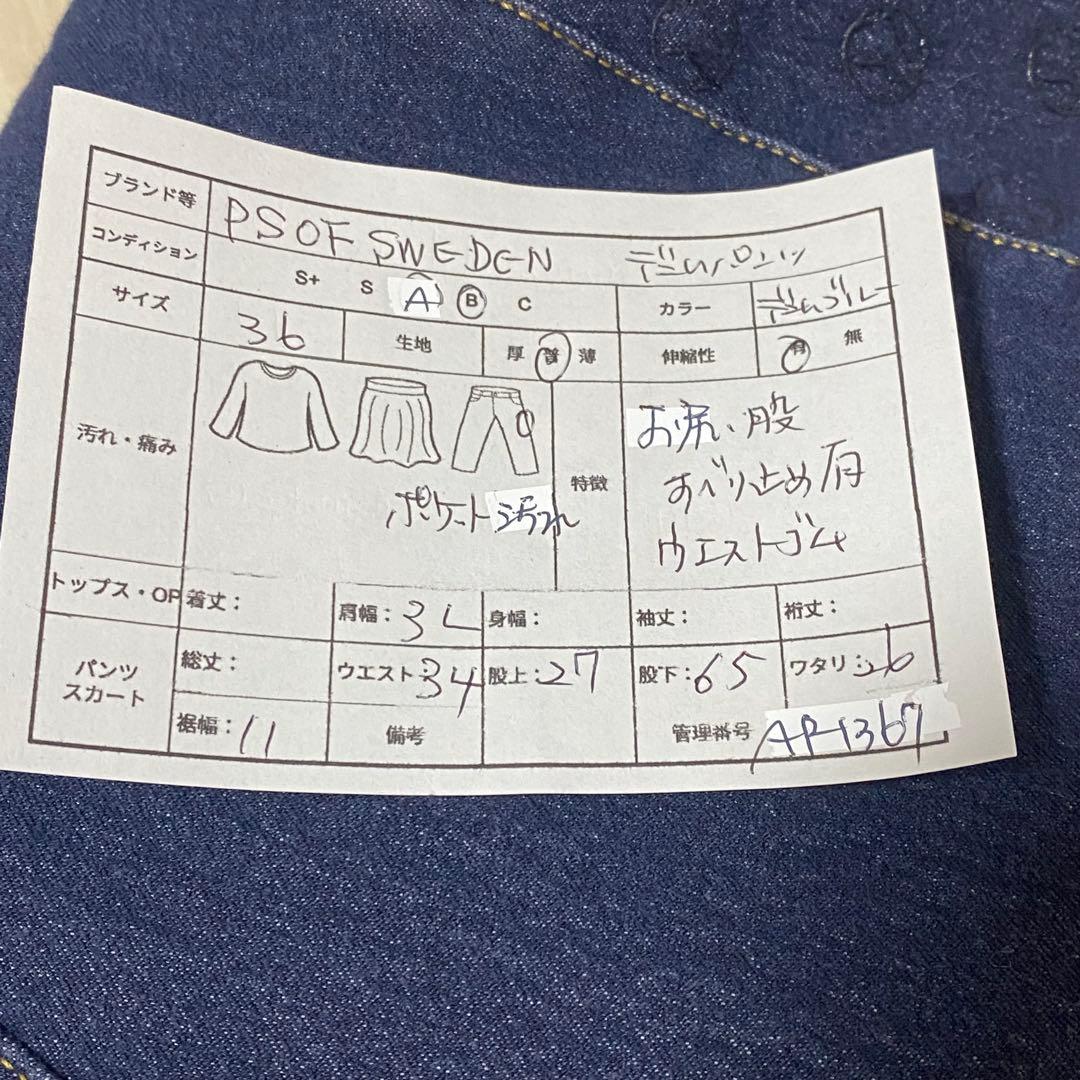 ブランド等 PSOF SWEDEN デニムパンツ
コンディション S+ S A B C カラー デニムブルー
サイズ 36 生地 厚 普 薄 伸縮性 有 無
汚れ・痛み ポケット汚れ
特徴 お尻、股
すべり止め有
ウエストゴム
トップス・OP 着丈: 肩幅: 身幅: 袖丈: 裄丈:
パンツ スカート 総丈: ウエスト:34 股上:27 股下:65 ワタリ:26
裾幅:11 備考 管理番号 AP-1367